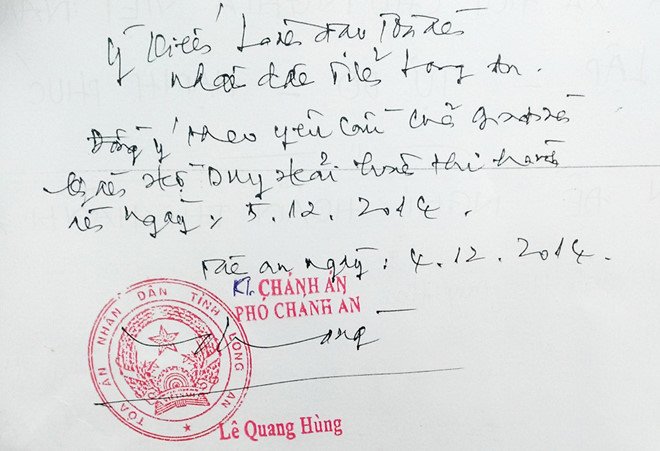 Ý kiến Lãnh đạo Tòa án
nhân dân tỉnh Long An.
Đồng ý theo yêu cầu của gia đình
bị án Hồ Duy Hải hoãn thi hành
án ngày: 5.12.2014.
Tân An ngày: 4.12.2014.
KT. CHÁNH ÁN
PHÓ CHÁNH ÁN
TÒA ÁN NHÂN DÂN TỈNH LONG AN
Lê Quang Hùng